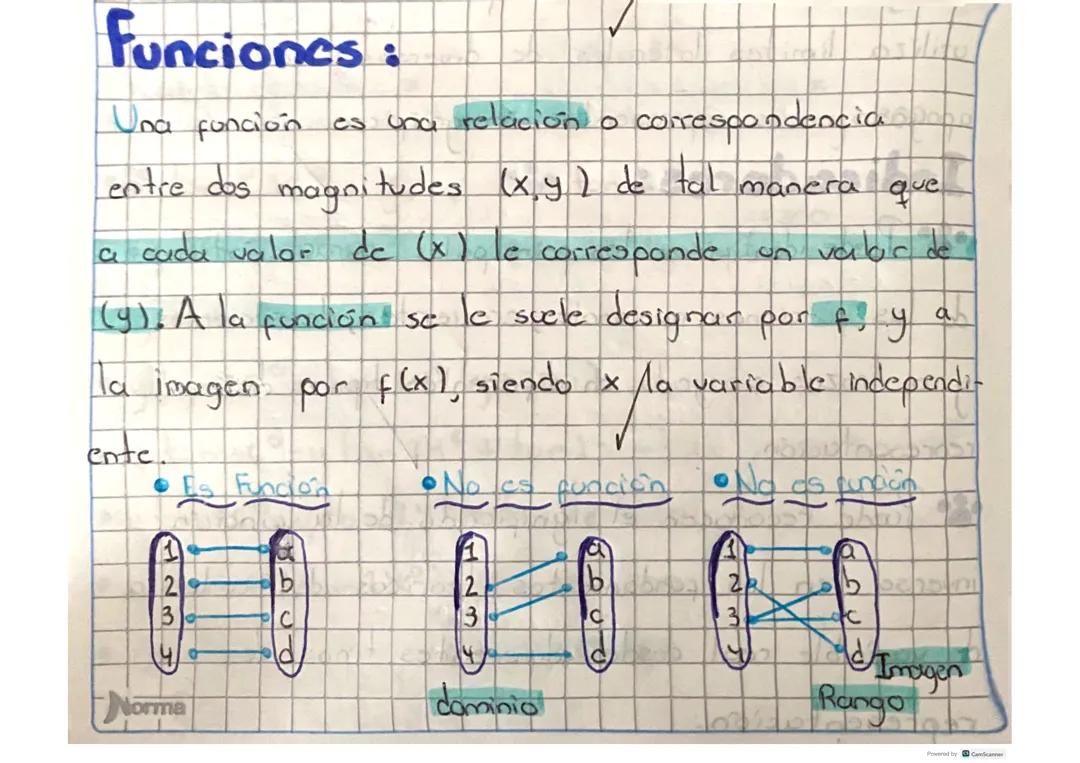 Funciones:
Una función es una relación o correspondencia
entre dos magnitudes (x,y) de tal manera que
a cada valor de (x) le corresponde un valor de
(y). A la función se le suele designar por f, y a
la imagen por f(x), siendo x la variable independi-
ente.
• Es Función • No es función • No es función
1 a 1 a 1 a
2 b 2 b 2 b
3 c 3 c 3 c
4 d 4 d 4 d
Imagen
Norma dominio Rango
Powered by CamScanner